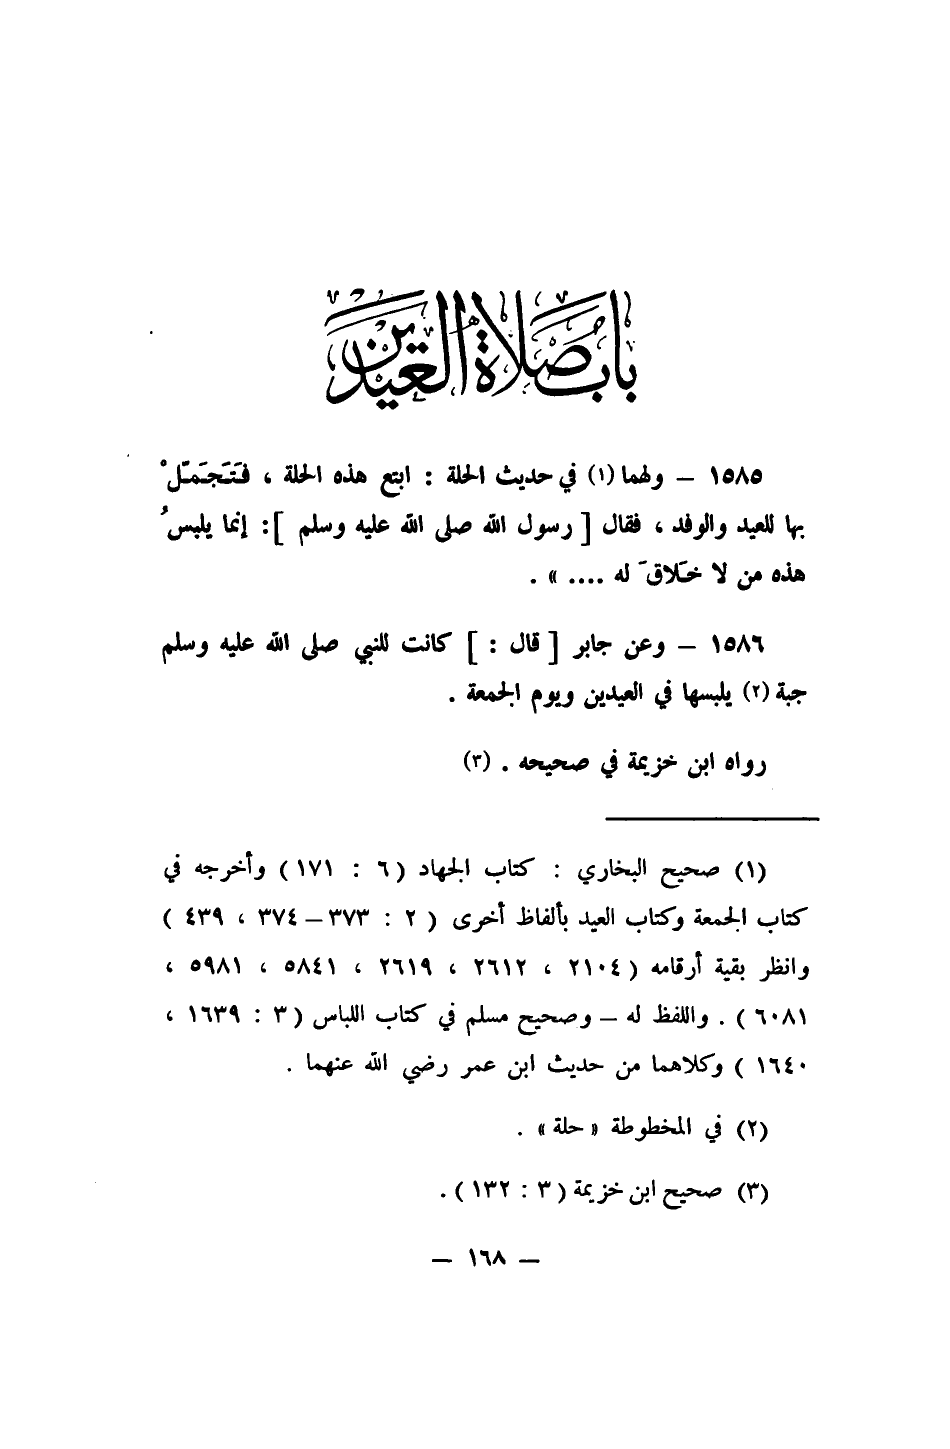 باب صلاة العيدين
١٥٨٥ – ولهما (١) في حديث الحلة : ابتع هذه الحلة ، فَتَجَمَّلْ
بها للعيد والوفد ، فقال [ رسول الله صلى الله عليه وسلم ] : إنما يلبسُ
هذه من لا خَلاقَ له .... » .
١٥٨٦ – وعن جابر [ قال : ] كانت للنبي صلى الله عليه وسلم
جبة (٢) يلبسها في العيدين ويوم الجمعة .
رواه ابن خزيمة في صحيحه . (٣)
(١) صحيح البخاري : كتاب الجهاد ( ٦ : ١٧١ ) وأخرجه في
كتاب الجمعة وكتاب العيد بألفاظ أخرى ( ٢ : ٣٧٣ – ٣٧٤ ، ٤٣٩ )
وانظر بقية أرقامه ( ٢١٠٤ ، ٢٦١٢ ، ٢٦١٩ ، ٥٨٤١ ، ٥٩٨١ ،
٦٠٨١ ) . واللفظ له – وصحيح مسلم في كتاب اللباس ( ٣ : ١٦٣٩ ،
١٦٤٠ ) وكلاهما من حديث ابن عمر رضي الله عنهما .
(٢) في المخطوطة « حلة » .
(٣) صحيح ابن خزيمة ( ٣ : ١٣٢ ) .
– ١٦٨ –